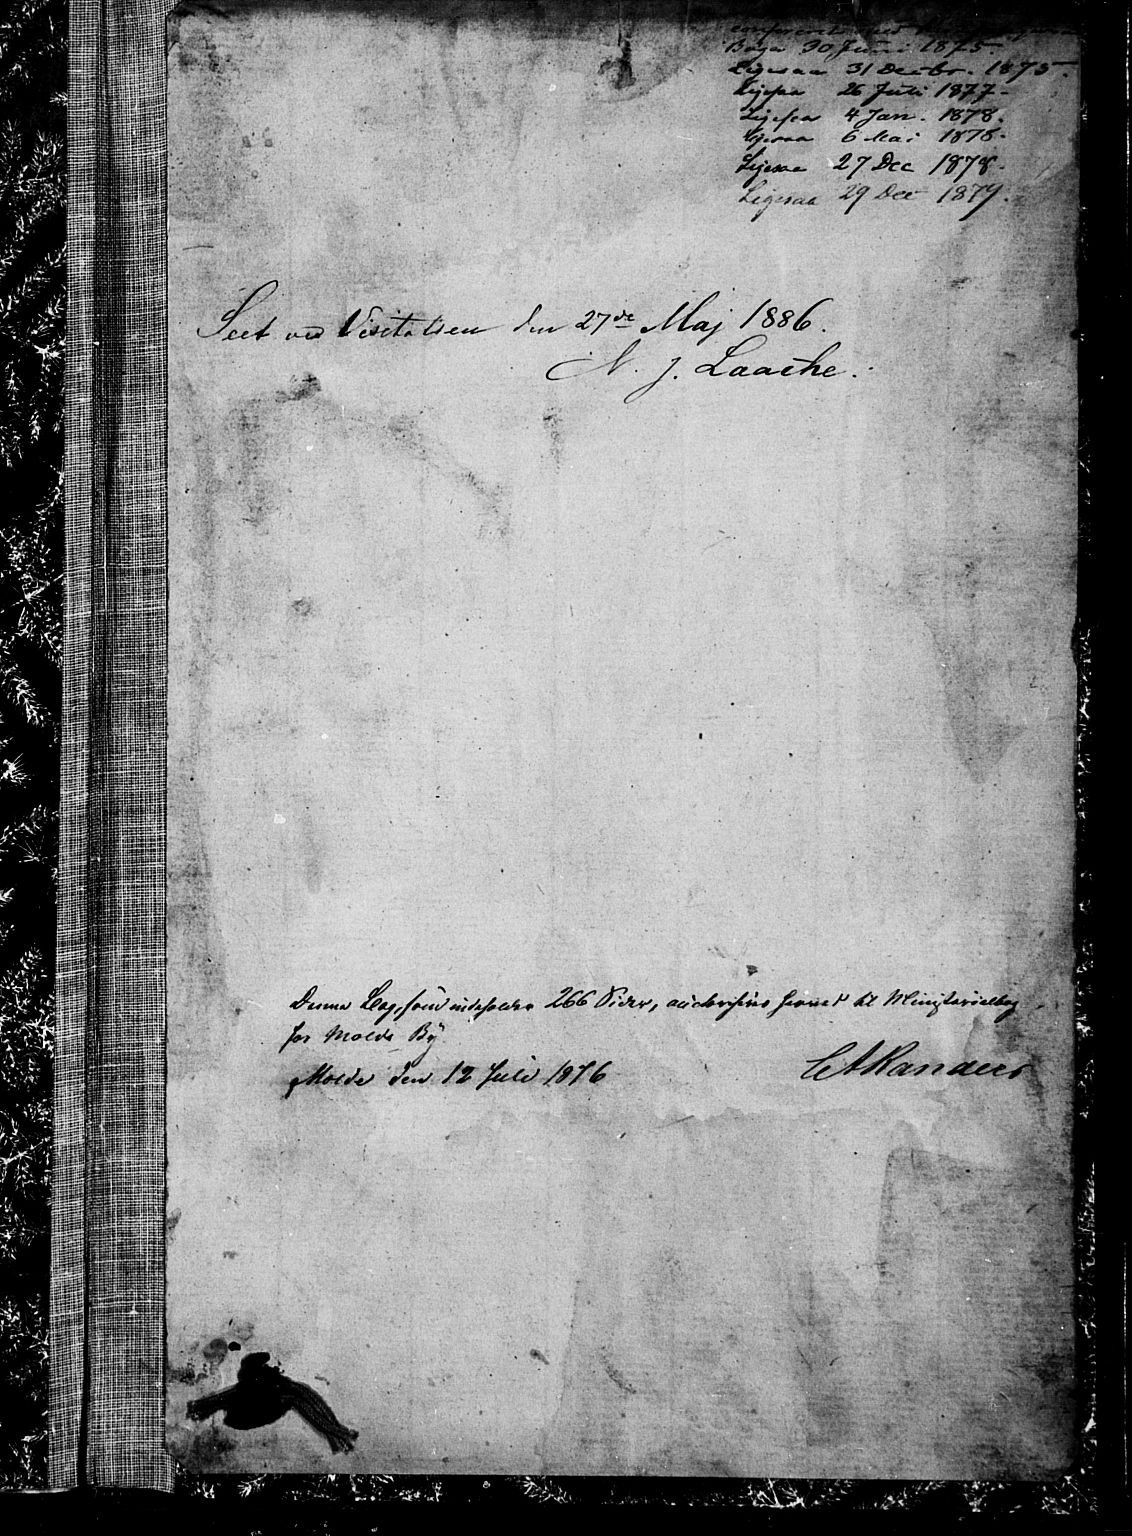 Bøger 30 Juni 1875
Ligesaa 31 Decbr. 1875.
Ligesaa 26 Juli 1877.
Ligesaa 4 Jan. 1878.
Ligesaa 6 Mai 1878.
Ligesaa 27 Dec 1878.
Ligesaa 29 Dec 1879.
Seet ved Visitatsen den 27de Maj 1886.
N. J. Laache.
Denne Bog, som indeholder 266 Sider, auctoriseres herved til Ministerialbog
for Molde By
Molde den 12 Juli 1876
Randers